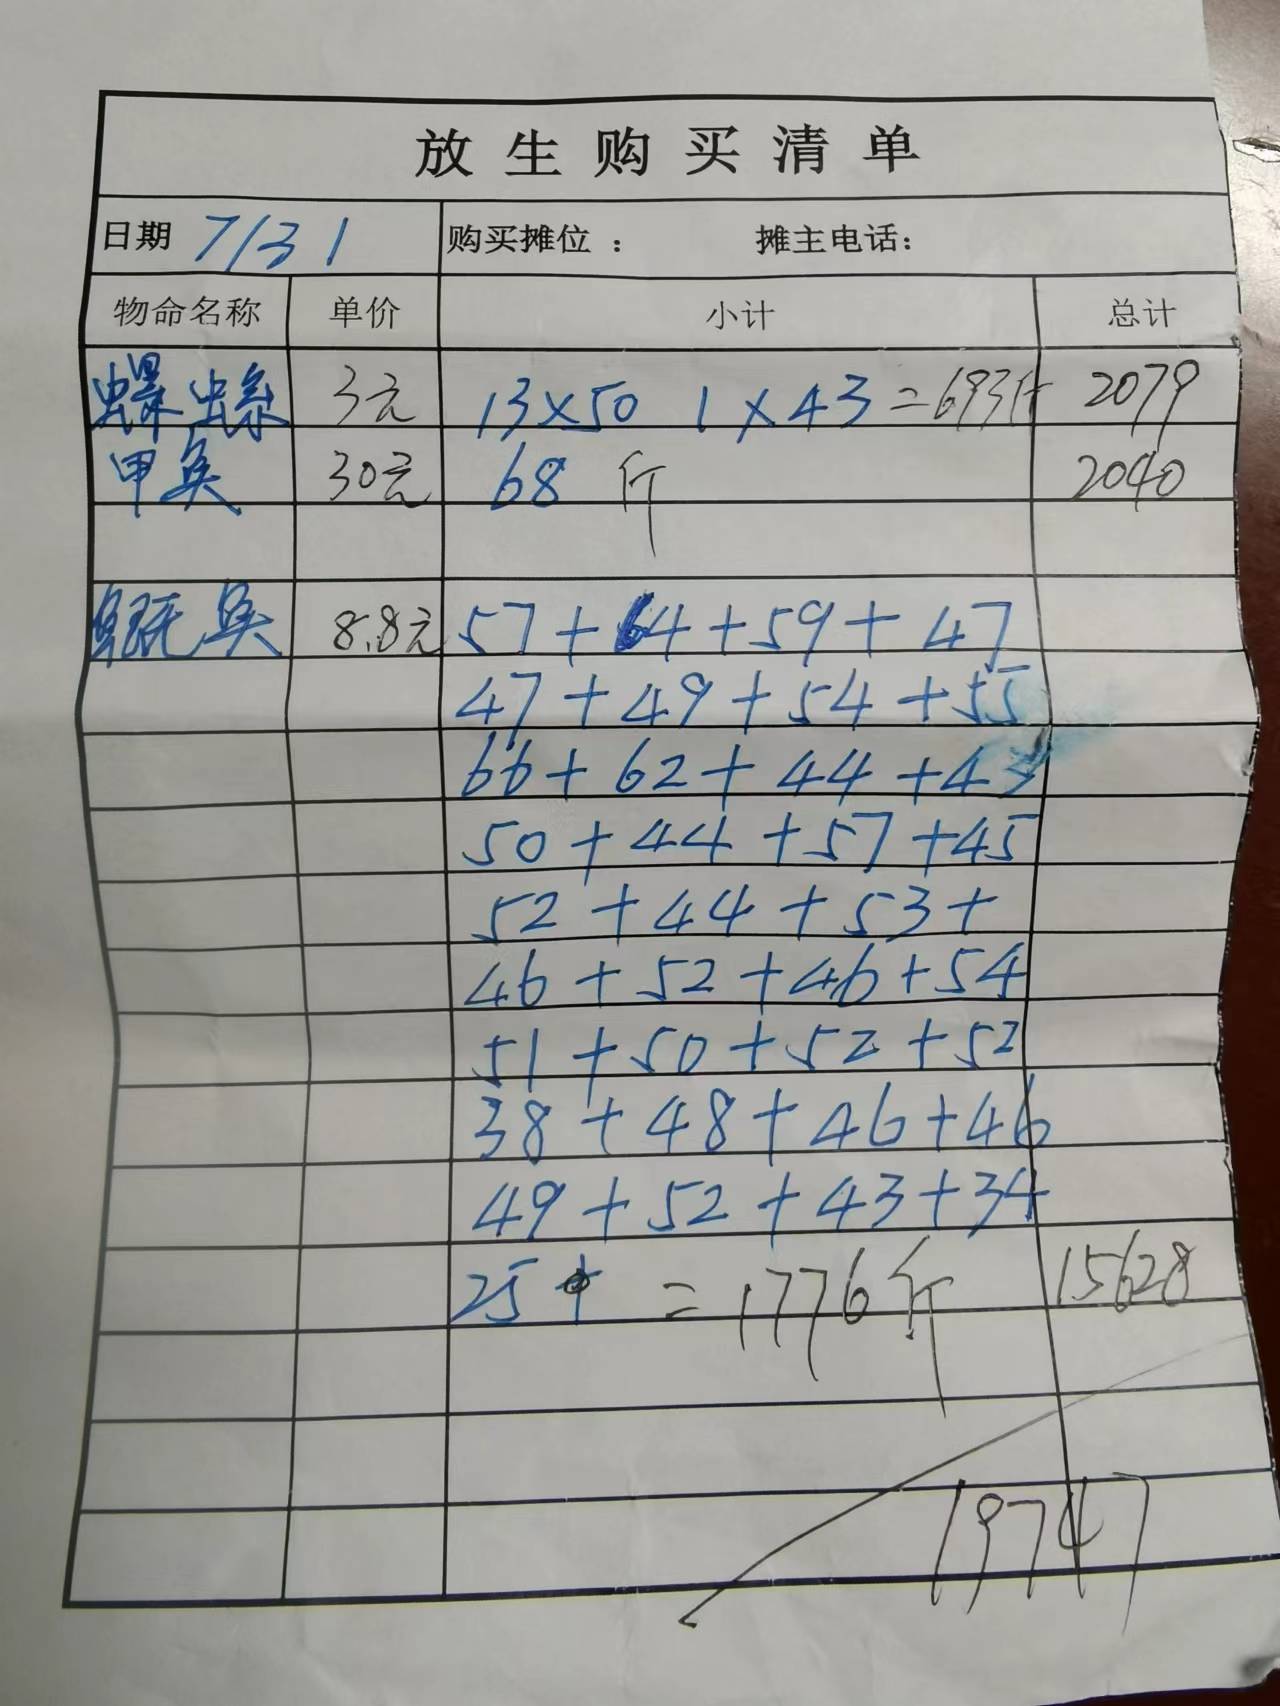 放生购买清单
日期 7/31 购买摊位： 摊主电话：
物命名称 单价 小计 总计
螺蛳 3元 13×50 1×43=693斤 2079
甲鱼 30元 68斤 2040
8.8元 57+64+59+47
47+49+54+55
66+62+44+43
50+44+57+45
52+44+53+
46+52+46+54
51+50+52+52
38+48+46+46
49+52+43+34
25 =1776斤 15628
19747